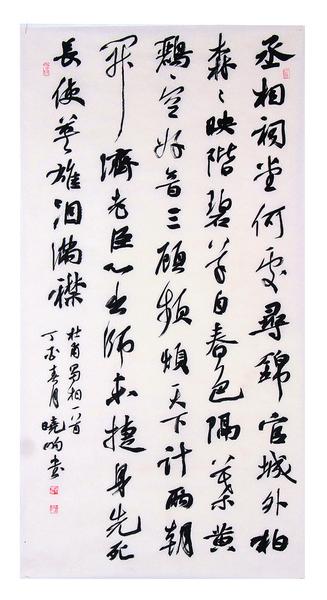 丞相祠堂何處尋錦官城外柏
森〻映階碧草自春色隔葉黃
鸝〻空好音三顧頻煩天下計兩朝
開濟老臣心出師未捷身先死
長使英雄泪滿襟
杜甫蜀相一首
丁亥春月曉書